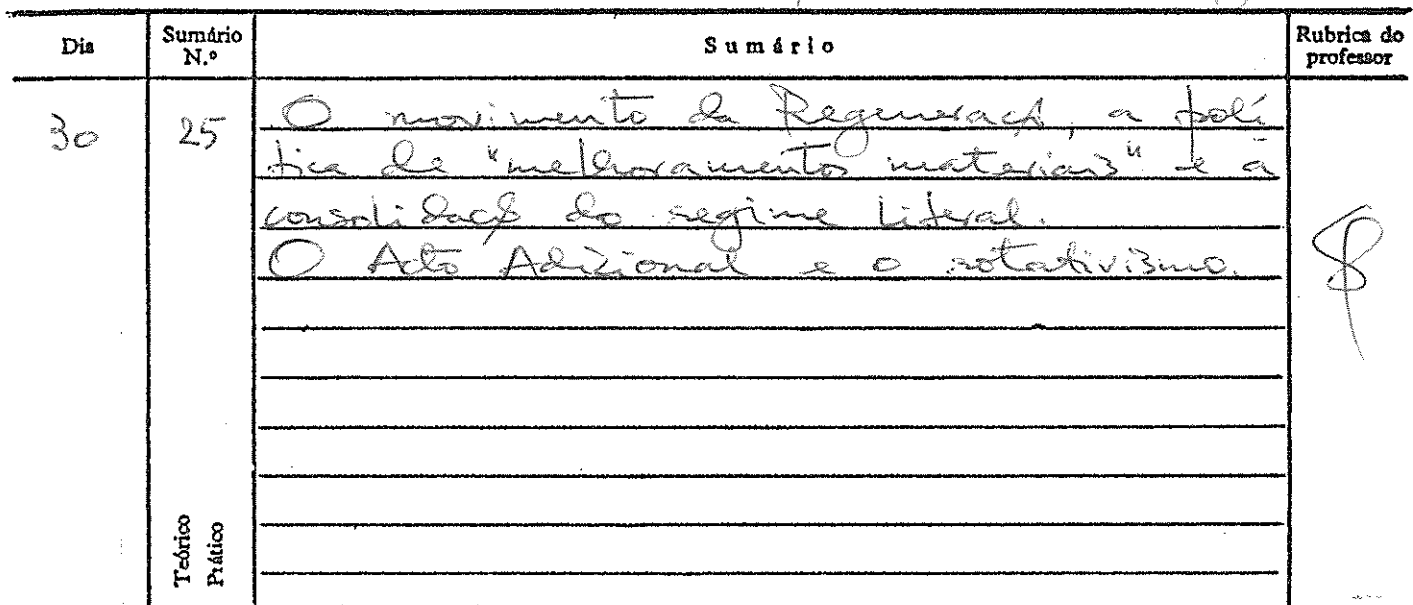 Dia Sumário N.º Sumário Rubrica do professor
30 25 O movimento da Regeneração, a polí
tica de "melhoramentos materiais" e a
consolidação do regime liberal.
O Acto Adicional e o rotativismo.
Teórico
Prático